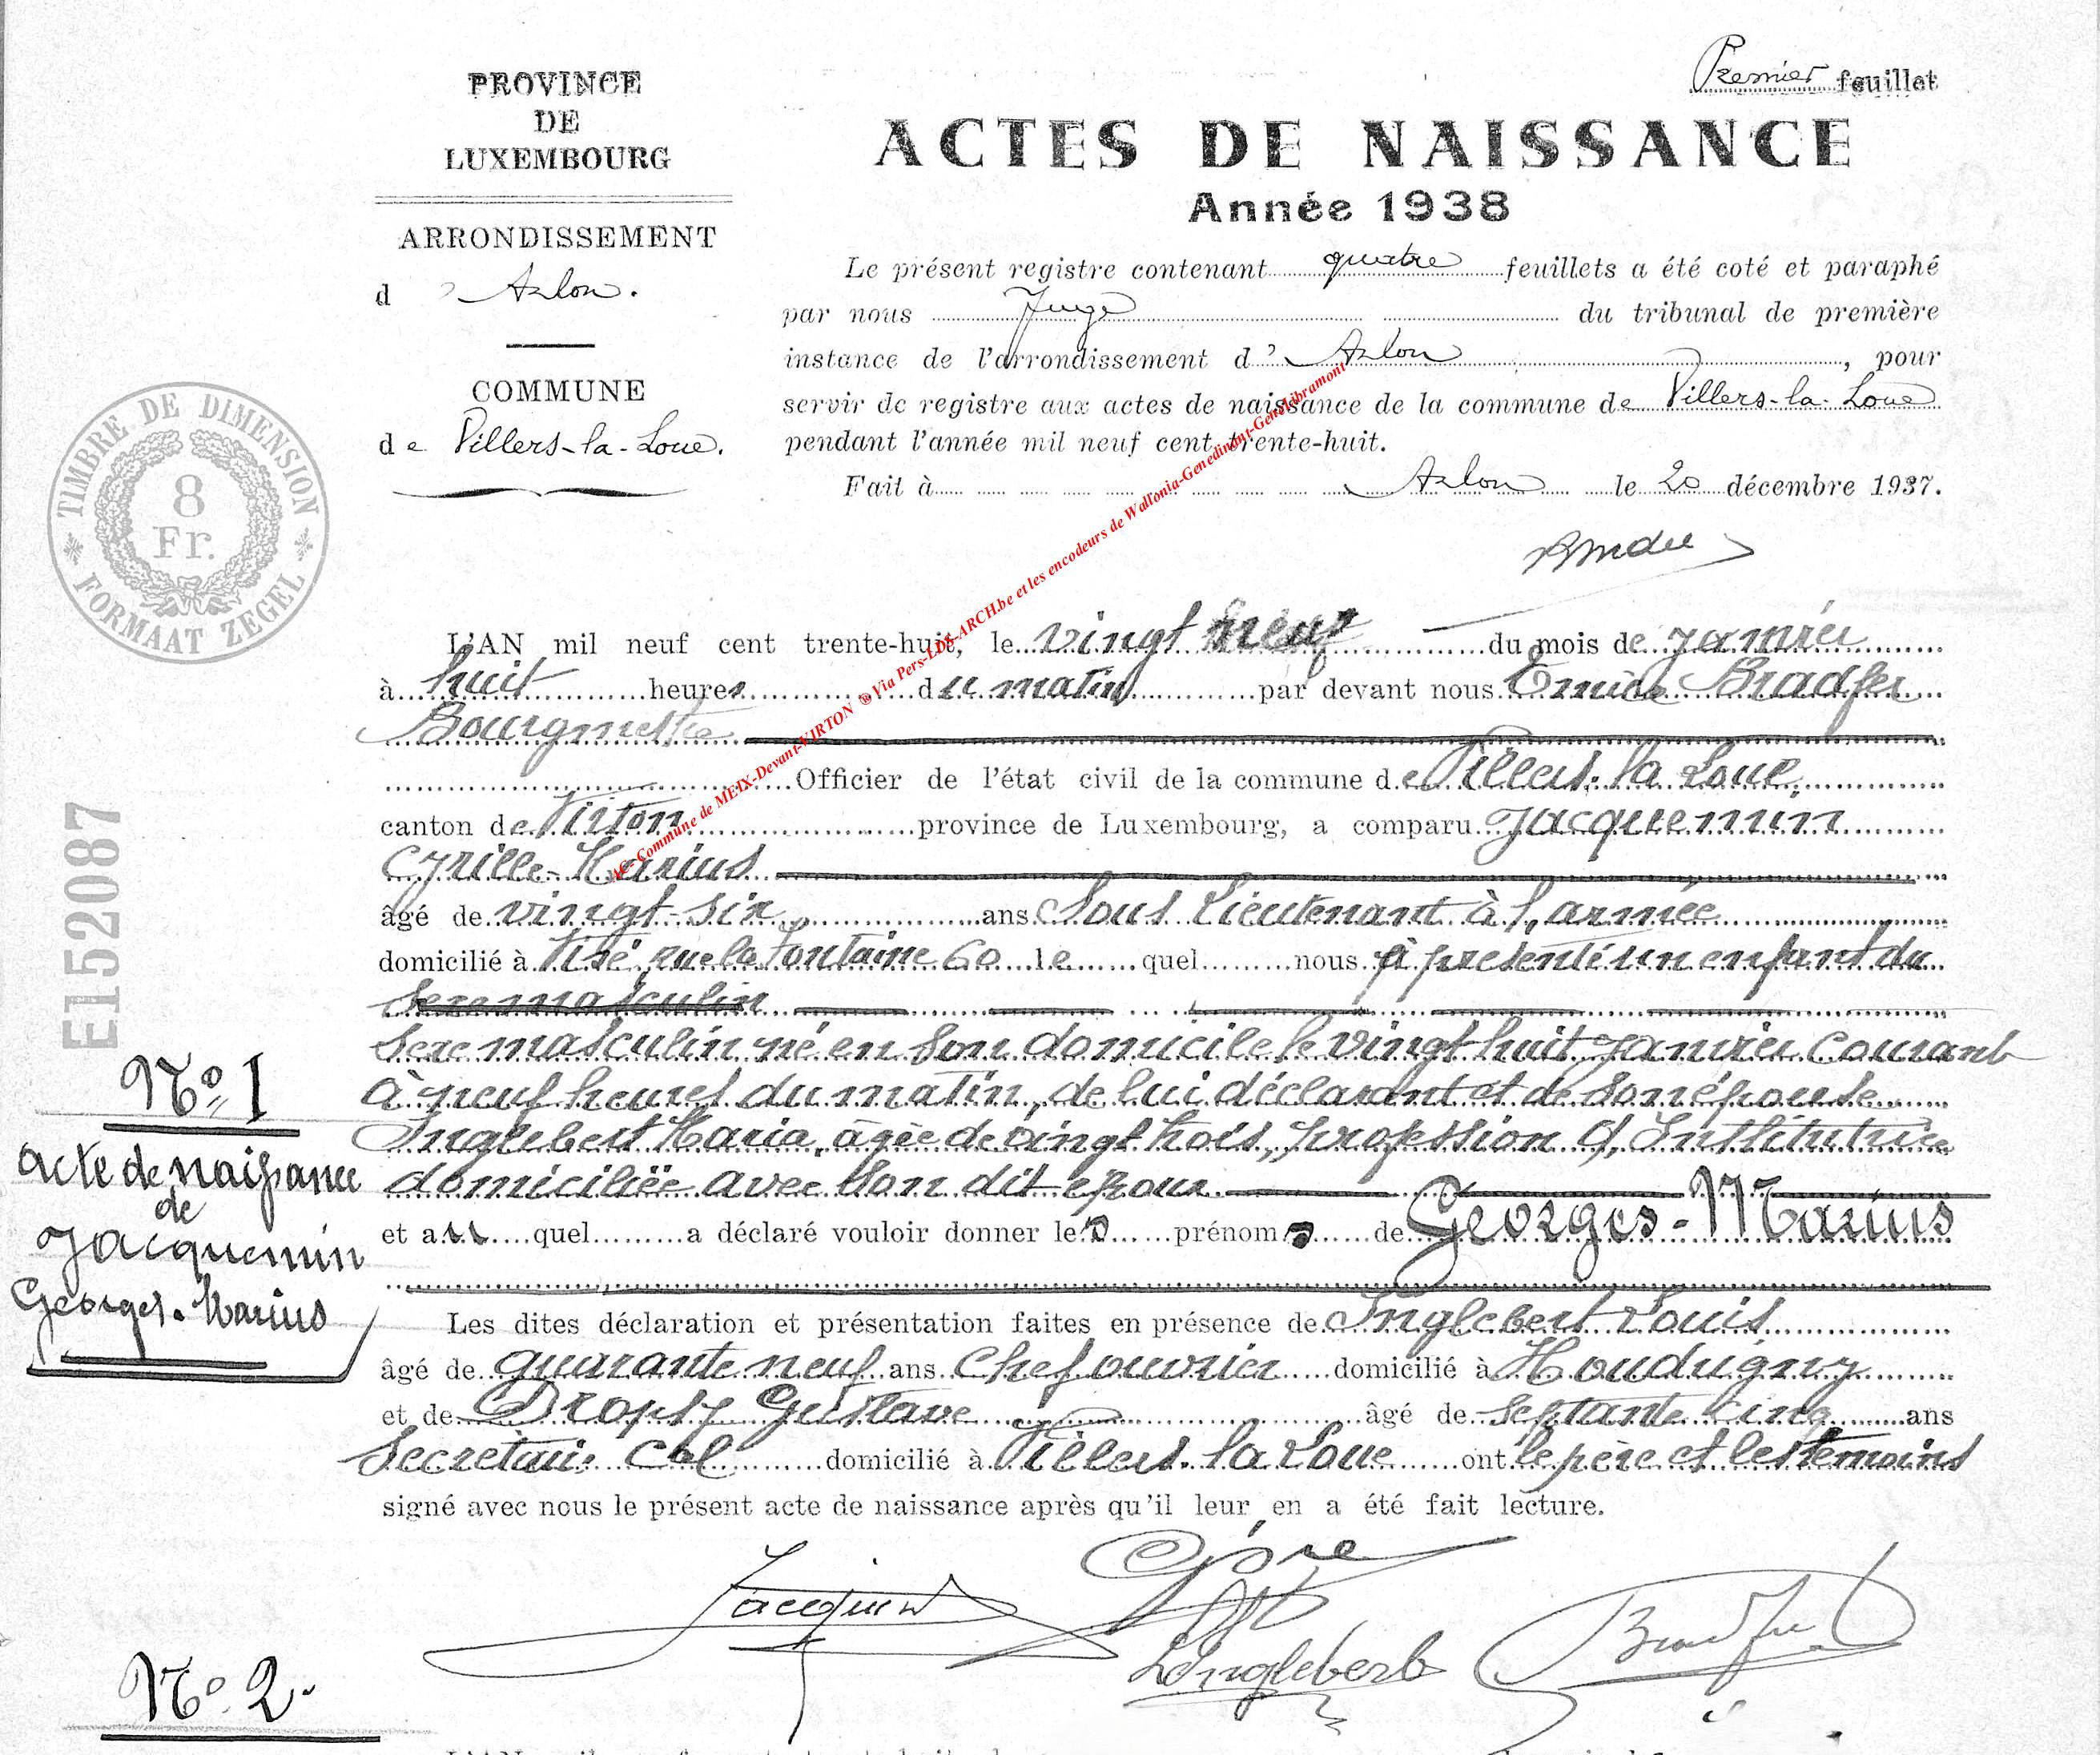 Premier feuillet
PROVINCE
DE
LUXEMBOURG
ARRONDISSEMENT
d'Arlon.
COMMUNE
de Villers-la-Loue.
TIMBRE DE DIMENSION
8
Fr.
FORMAAT ZEGEL
E152087
ACTES DE NAISSANCE
Année 1938
Le présent registre contenant quatre feuillets a été coté et paraphé
par nous Juge du tribunal de première
instance de l'arrondissement d'Arlon, pour
servir de registre aux actes de naissance de la commune de Villers-la-Loue
pendant l'année mil neuf cent trente-huit.
Fait à Arlon le 20 décembre 1937.
AC-Commune de MEIX-Devant-VIRTON ® Via Pers-LDS-ARCH.be et les encodeurs de Wallonia-Genedinant-Genealibramont
L'AN mil neuf cent trente-huit, le vingt neuf du mois de janvier
à huit heures du matin par devant nous Bradfer
Bourgmestre
Officier de l'état civil de la commune de Villers-la-Loue
canton de Virton province de Luxembourg, a comparu Jacquemin
Cyrille-Marius
âgé de vingt-six ans Sous Lieutenant à l'armée
domicilié à Visé, rue la Fontaine 60 le quel nous a présenté un enfant du
sexe masculin
sexe masculin né en son domicile le vingt huit janvier courant
à neuf heures du matin, de lui déclarant et de son épouse
Inglebert Maria, âgée de vingt trois, profession d'Institutrice
domiciliée avec son dit époux
et au quel a déclaré vouloir donner les prénoms de Georges-Marius
Les dites déclaration et présentation faites en présence de Inglebert Louis
âgé de quarante neuf ans Chef ouvrier domicilié à Houdrigny
et de Dropsy Gustave âgé de septante cinq ans
Secrétaire Cal domicilié à Villers-la-Loue ont le père et les témoins
signé avec nous le présent acte de naissance après qu'il leur en a été fait lecture.
N° 1
Acte de naissance
de
Jacquemin
Georges-Marius
Jacquemin
L Inglebert
Bradfer
N° 2.